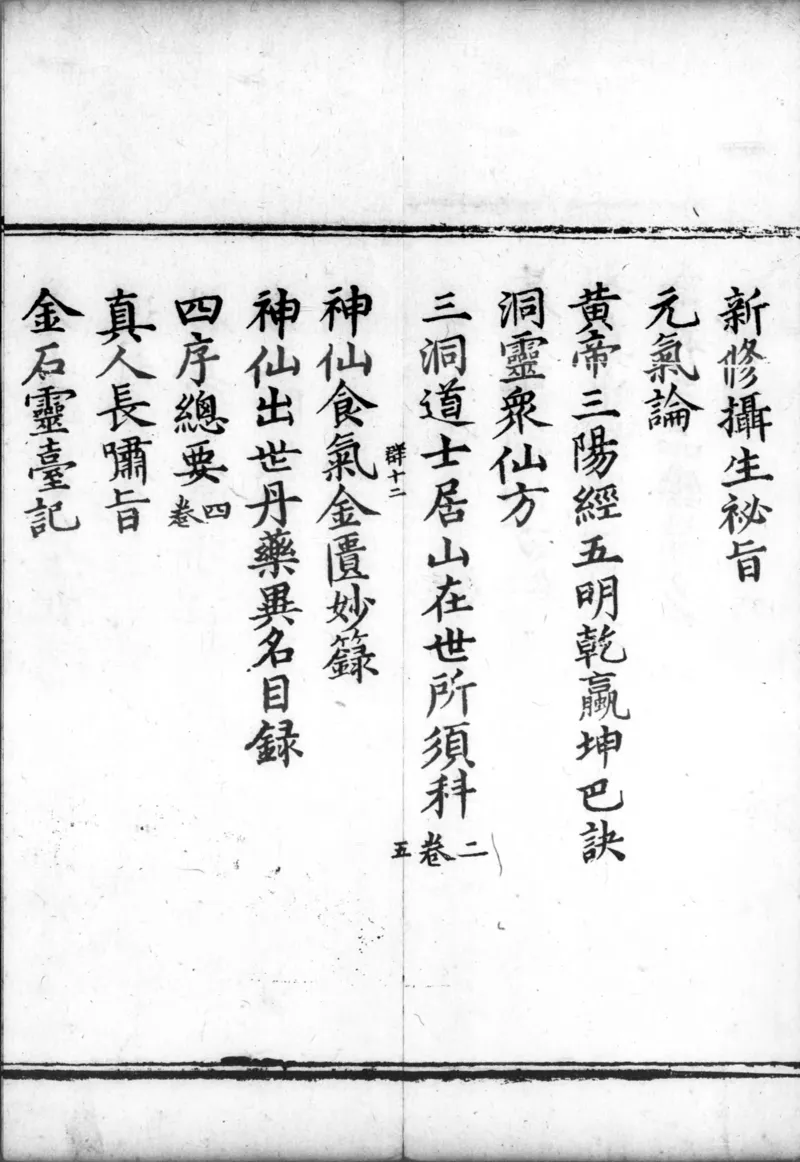 新修攝生祕旨
元氣論
黄帝三陽經五明乾羸坤巴訣
洞靈衆仙方
三洞道士居山在世所須科二卷
群十二
五
神仙食氣金匱妙籙
神仙出世丹藥異名目録
四序總要四卷
真人長嘯旨
金石靈臺記